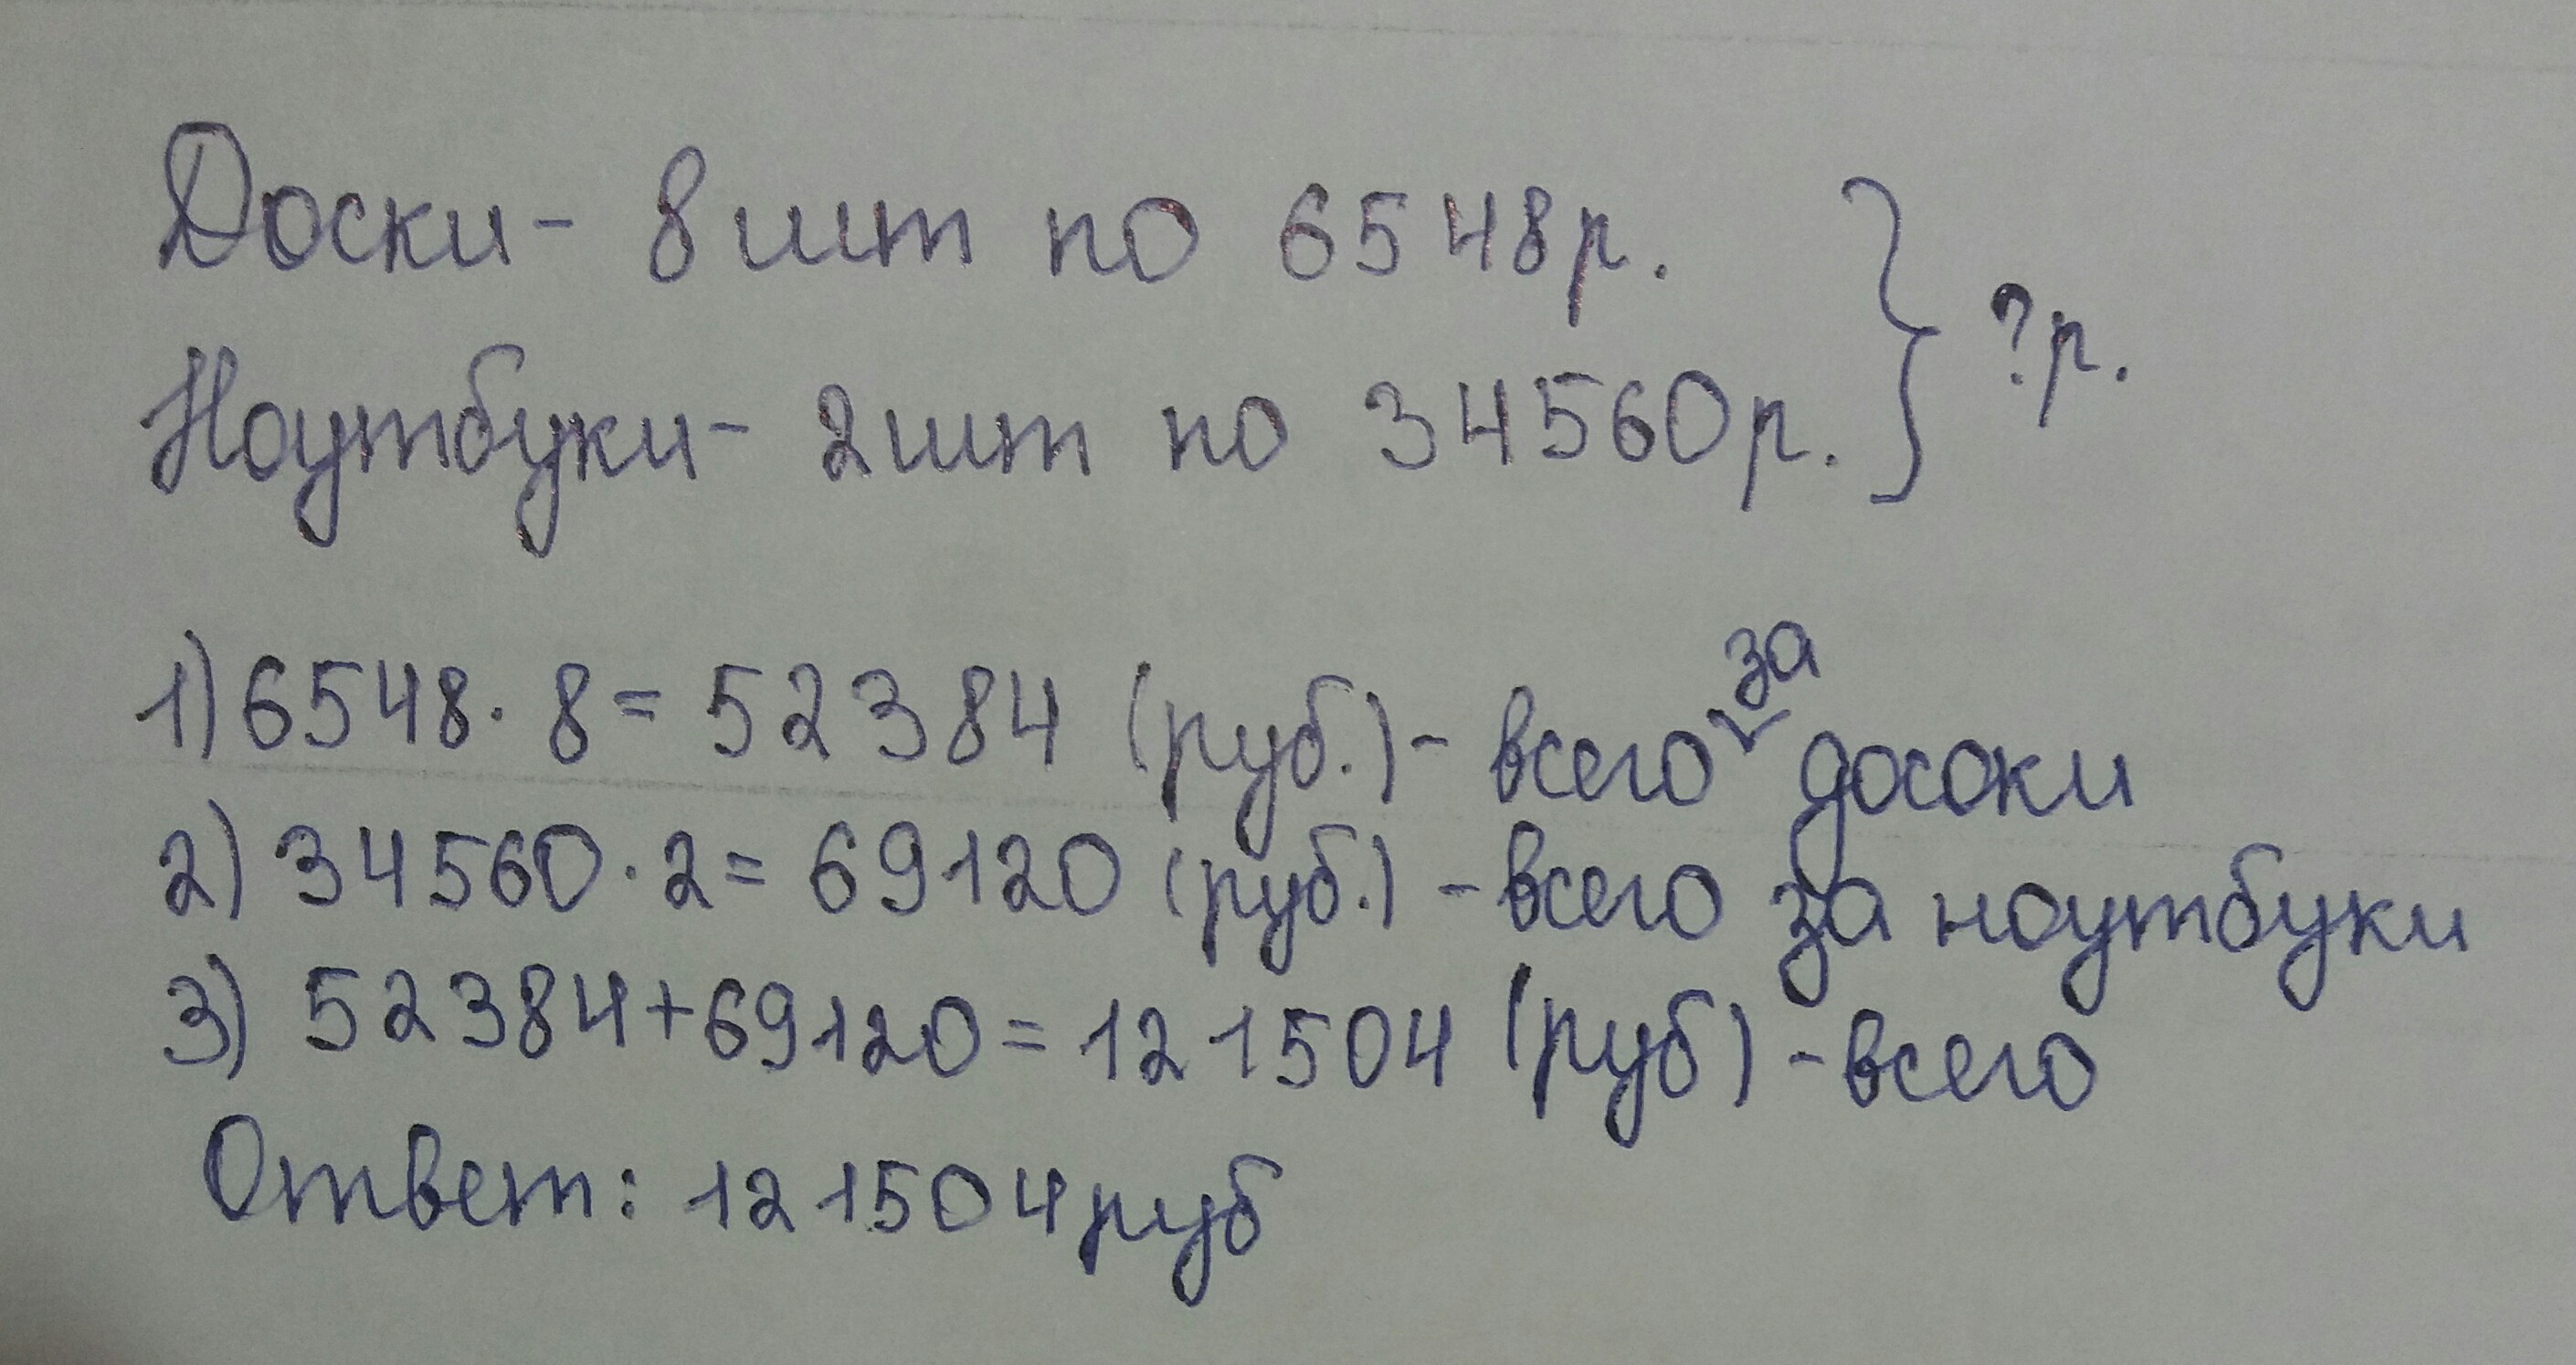 Доски - 8 шт по 6548р.
Ноутбуки - 2 шт по 34560р. } ?р.
1) 6548 · 8 = 52384 (руб.) - всего за досоки
2) 34560 · 2 = 69120 (руб.) - всего за ноутбуки
3) 52384 + 69120 = 121504 (руб) - всего
Ответ: 121504 руб